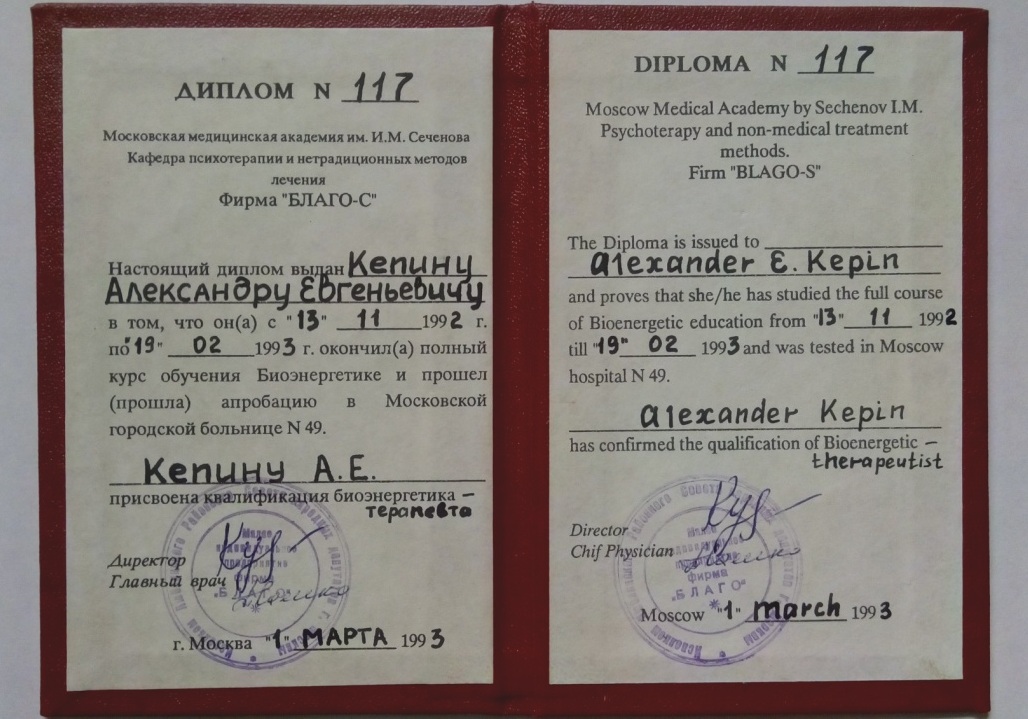 ДИПЛОМ N 117
Московская медицинская академия им. И.М. Сеченова
Кафедра психотерапии и нетрадиционных методов
лечения
Фирма "БЛАГО-С"
Настоящий диплом выдан Кепину
Александру Евгеньевичу
в том, что он(а) с "13" 11 1992 г.
по "19" 02 1993 г. окончил(а) полный
курс обучения Биоэнергетике и прошел
(прошла) апробацию в Московской
городской больнице N 49.
Кепину А.Е.
присвоена квалификация биоэнергетика –
терапевта
Директор
Главный врач
фирма
"БЛАГО"
г. Москва "1" МАРТА 1993
DIPLOMA N 117
Moscow Medical Academy by Sechenov I.M.
Psychoterapy and non-medical treatment
methods.
Firm "BLAGO-S"
The Diploma is issued to
Alexander E. Kepin
and proves that she/he has studied the full course
of Bioenergetic education from "13" 11 1992
till "19" 02 1993 and was tested in Moscow
hospital N 49.
Alexander Kepin
has confirmed the qualification of Bioenergetic –
therapeutist
Director
Chif Physician
фирма
"БЛАГО"
Moscow "1" march 1993